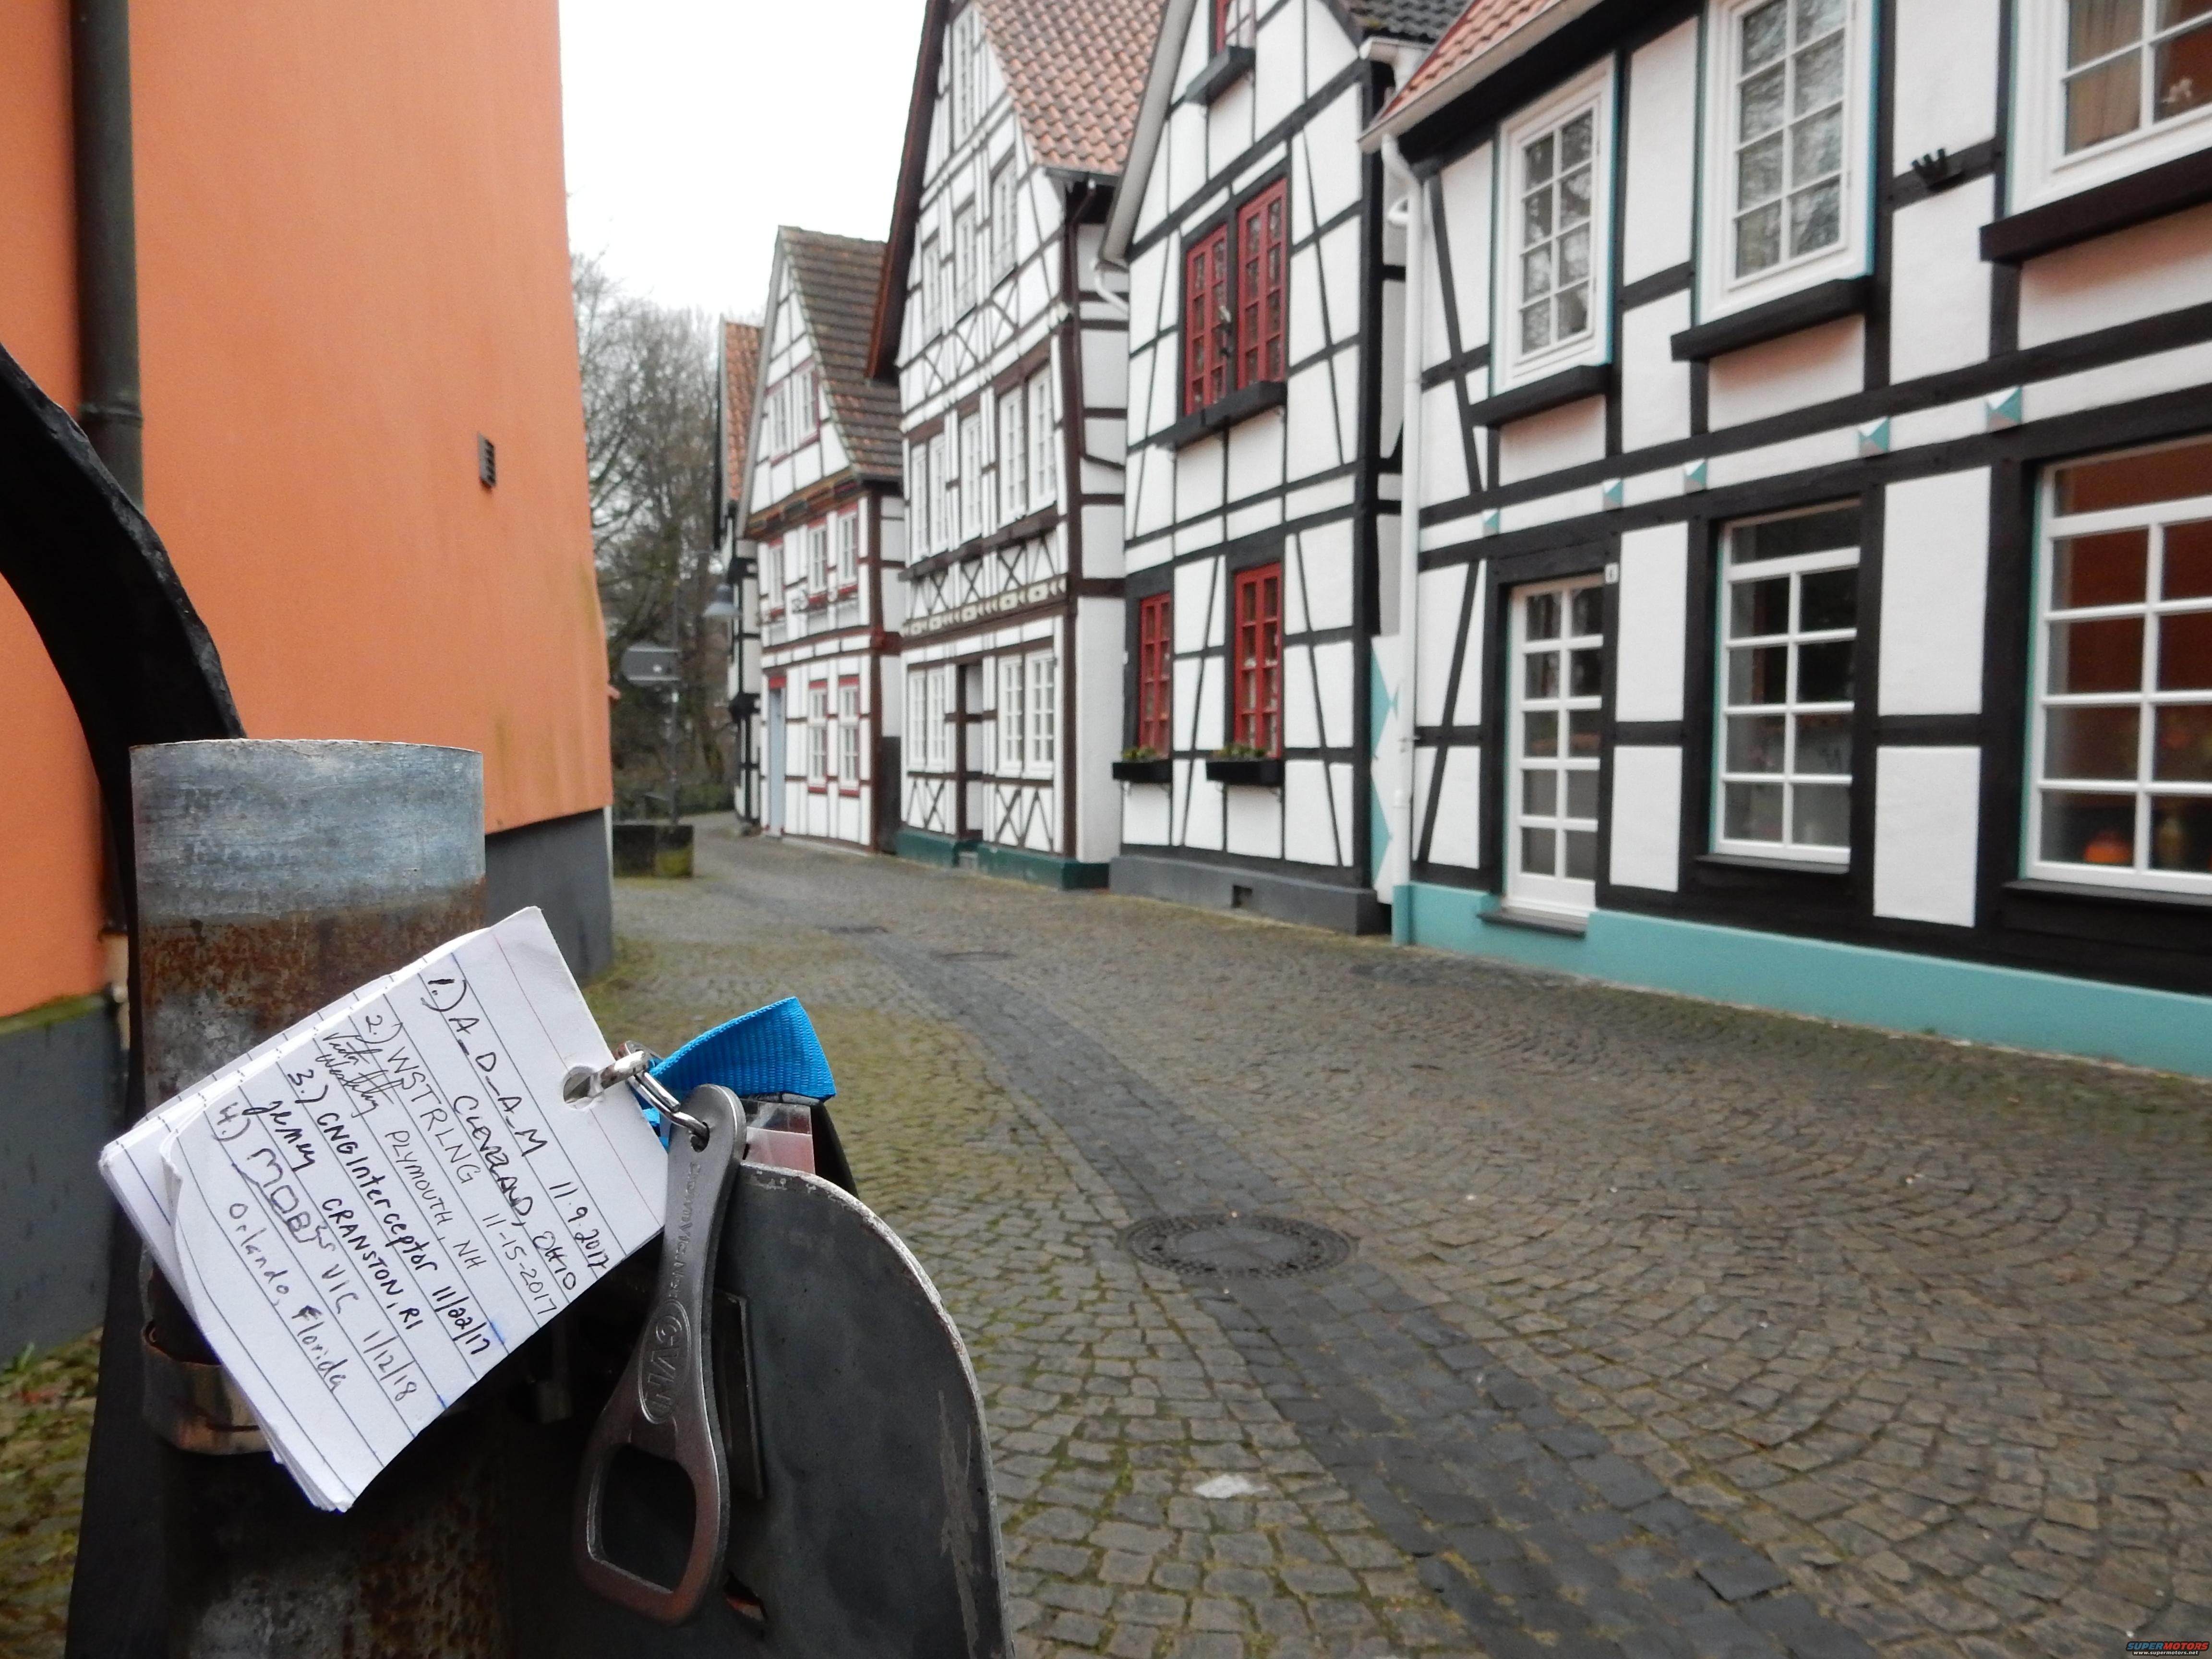 1.) A_D_A_M 11.9.2017
CLEVELAND, OHIO
2.) WSTRLNG 11-15-2017
PLYMOUTH, NH
3.) CNGInterceptor 11/22/17
Jersey CRANSTON, RI
4.) MOBS VIC 1/12/18
Orlando, Florida
SUPERMOTORS
www.supermotors.net